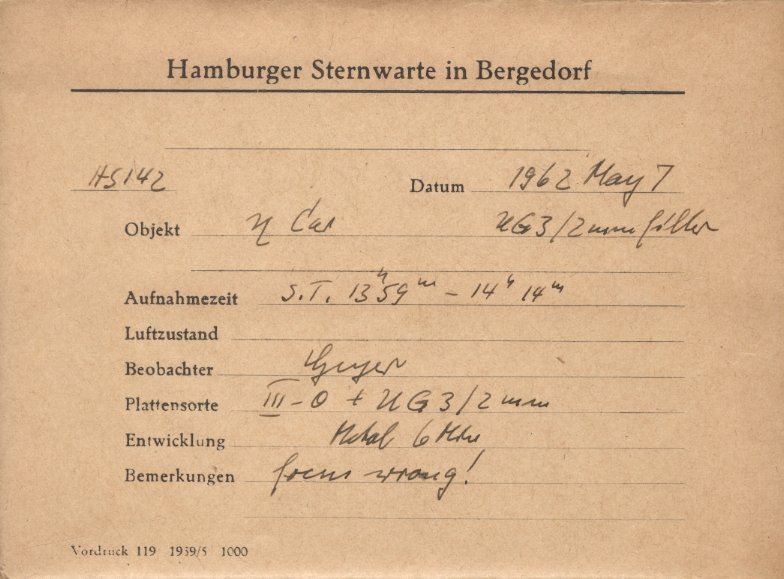 Hamburger Sternwarte in Bergedorf
HS142 Datum 1962 May 7
Objekt η Car UG3/2mm filter
Aufnahmezeit S.T. 13ʰ59ᵐ – 14ʰ14ᵐ
Luftzustand
Beobachter Geyer
Plattensorte III-O + UG3/2mm
Entwicklung 6 Min
Bemerkungen focus wrong!
Vordruck 119 1959/5 1000